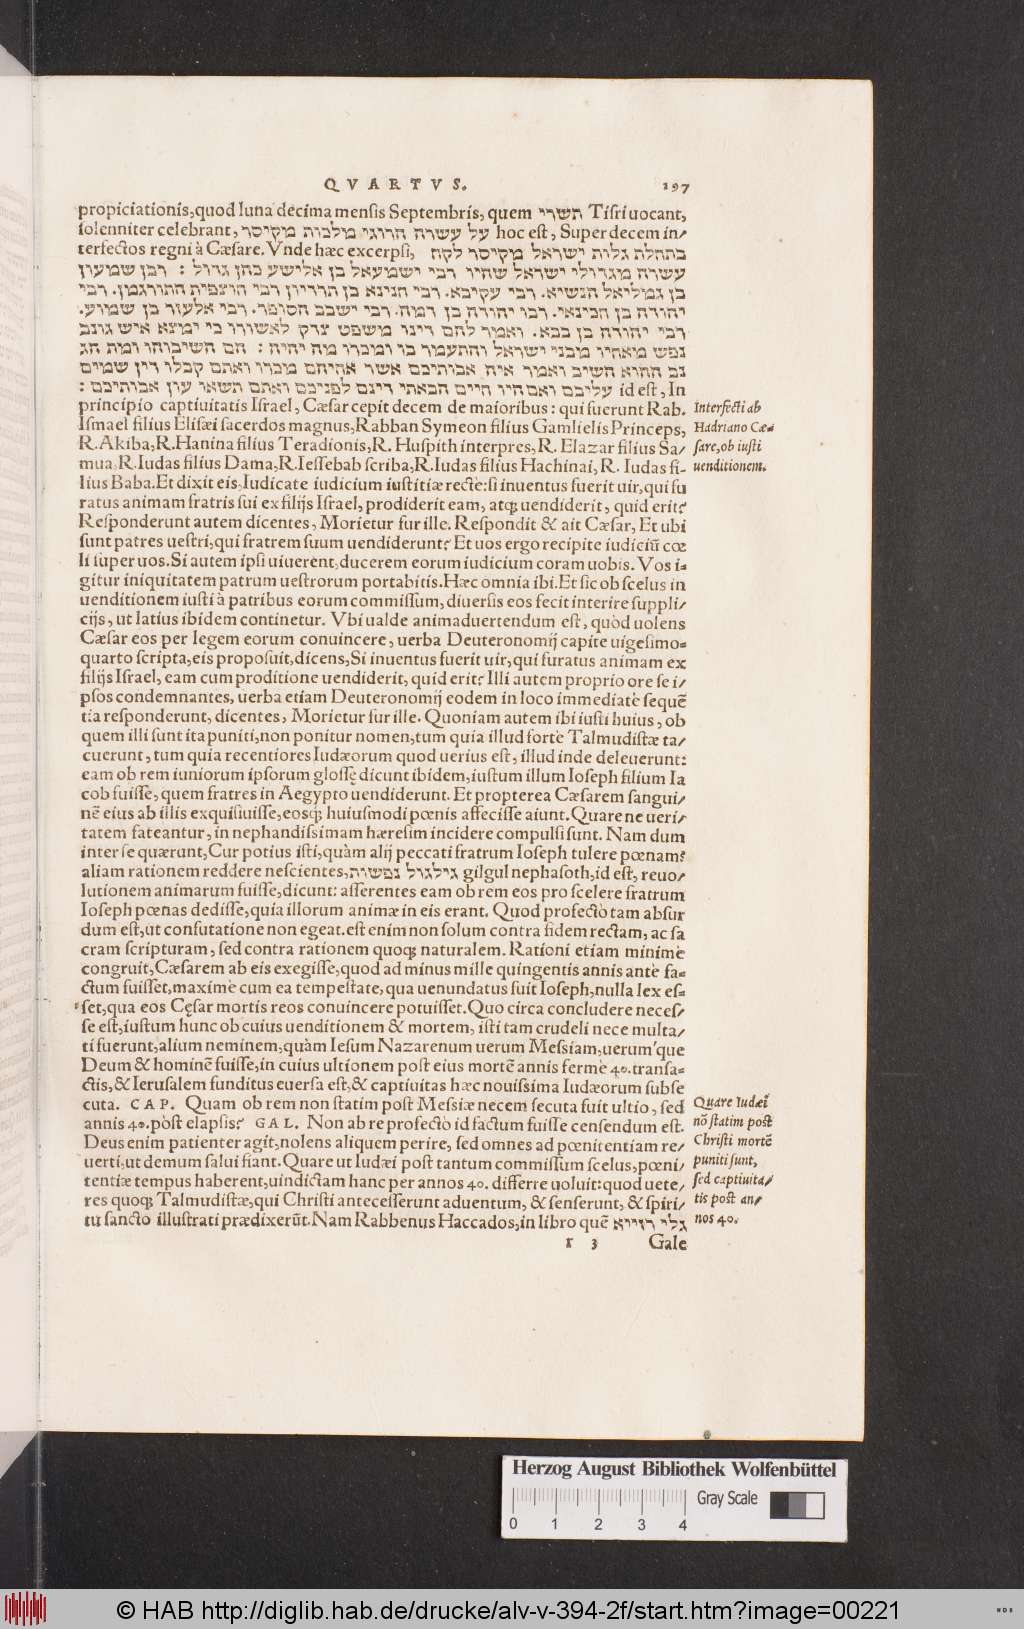 QVARTVS. 197
propiciationis, quod luna decima mensis Septembris, quem תשרי Tisri uocant,
solenniter celebrant, על עשרה הרוגי מלכות מקיסר hoc est, Super decem in/
terfectos regni à Cæsare. Vnde hæc excerpsi, בתחלת גלות ישראל מקיסר לקח
עשרה מגדולי ישראל שהיו רבי ישמעאל בן אלישע כהן גדול : רבן שמעון
בן גמליאל הנשיא. רבי עקיבא. רבי חנינא בן תרדיון רבי חוצפית התורגמן. רבי
יהודה בן חכינאי. רבי יהודה בן דמה. רבי ישבב הסופר. רבי אלעזר בן שמוע.
רבי יהודה בן בבא. ואמר להם דינו משפט צדק לאשורו כי ימצא איש גונב
נפש מאחיו מבני ישראל והתעמר בו ומכרו מה יהיה : הם השיבוהו ומת הג
נב ההוא השיב ואמר איה אבותיכם אשר אחיהם מכרו ואתם קבלו דין שמים
עליכם ואם היו חיים הבאתי דינם לפניכם ואתם תשאו עון אבותיכם : id est, In
principio captiuitatis Israel, Cæsar cepit decem de maioribus: qui fuerunt Rab.
Ismael filius Elisæi sacerdos magnus, Rabban Symeon filius Gamlielis Princeps,
R. Akiba, R. Hanina filius Teradionis, R. Huspith interpres, R. Elazar filius Sa/
mua, R. Iudas filius Dama, R. Iessebab scriba, R. Iudas filius Hachinai, R. Iudas fi-
lius Baba. Et dixit eis, Iudicate iudicium iustitiæ rectè: si inuentus fuerit uir, qui fu
ratus animam fratris sui ex filijs Israel, prodiderit eam, atq; uendiderit, quid erit?
Responderunt autem dicentes, Morietur fur ille. Respondit & ait Cæsar, Et ubi
sunt patres uestri, qui fratrem suum uendiderunt? Et uos ergo recipite iudiciũ cœ
li super uos. Si autem ipsi uiuerent, ducerem eorum iudicium coram uobis. Vos i-
gitur iniquitatem patrum uestrorum portabitis. Hæc omnia ibi. Et sic ob scelus in
uenditionem iusti à patribus eorum commissum, diuersis eos fecit interire suppli/
cijs, ut latius ibidem continetur. Vbi ualde animaduertendum est, quòd uolens
Cæsar eos per legem eorum conuincere, uerba Deuteronomij capite uigesimo-
quarto scripta, eis proposuit, dicens, Si inuentus fuerit uir, qui furatus animam ex
filijs Israel, eam cum proditione uendiderit, quid erit? Illi autem proprio ore se i/
psos condemnantes, uerba etiam Deuteronomij eodem in loco immediatè sequẽ
tia responderunt, dicentes, Morietur fur ille. Quoniam autem ibi iusti huius, ob
quem illi sunt ita puniti, non ponitur nomen, tum quia illud fortè Talmudistæ ta/
cuerunt, tum quia recentiores Iudæorum quod uerius est, illud inde deleuerunt:
eam ob rem iuniorum ipsorum glossę dicunt ibidem, iustum illum Ioseph filium Ia
cob fuisse, quem fratres in Aegypto uendiderunt. Et propterea Cæsarem sangui/
nẽ eius ab illis exquisiuisse, eosq; huiusmodi pœnis affecisse aiunt. Quare ne ueri/
tatem fateantur, in nephandissimam hæresim incidere compulsi sunt. Nam dum
inter se quærunt, Cur potius isti, quàm alij peccati fratrum Ioseph tulere pœnam?
aliam rationem reddere nescientes, גילגול נפשות gilgul nephasoth, id est, reuo/
lutionem animarum fuisse, dicunt: asserentes eam ob rem eos pro scelere fratrum
Ioseph pœnas dedisse, quia illorum animæ in eis erant. Quod profectò tam absur
dum est, ut confutatione non egeat. est enim non solum contra fidem rectam, ac sa
cram scripturam, sed contra rationem quoq; naturalem. Rationi etiam minimè
congruit, Cæsarem ab eis exegisse, quod ad minus mille quingentis annis antè fa-
ctum fuisset, maximè cum ea tempestate, qua uenundatus fuit Ioseph, nulla lex es-
set, qua eos Cęsar mortis reos conuincere potuisset. Quo circa concludere neces/
se est, iustum hunc ob cuius uenditionem & mortem, isti tam crudeli nece multa/
ti fuerunt, alium neminem, quàm Iesum Nazarenum uerum Messiam, uerum'que
Deum & hominẽ fuisse, in cuius ultionem post eius mortẽ annis fermè 40. transa-
ctis, & Ierusalem funditus euersa est, & captiuitas hæc nouissima Iudæorum subse
cuta. CAP. Quam ob rem non statim post Messiæ necem secuta fuit ultio, sed
annis 40. pòst elapsis? GAL. Non ab re profectò id factum fuisse censendum est.
Deus enim patienter agit, nolens aliquem perire, sed omnes ad pœnitentiam re/
uerti, ut demum salui fiant. Quare ut Iudæi post tantum commissum scelus, pœni/
tentiæ tempus haberent, uindictam hanc per annos 40. differre uoluit: quod uete/
res quoq; Talmudistæ, qui Christi antecesserunt aduentum, & senserunt, & spiri/
tu sancto illustrati prædixerũt. Nam Rabbenus Haccados, in libro quẽ גלי רזייא
r 3 Gale
Interfecti ab
Hadriano Cæ-
sare, ob iusti
uenditionem.
Quare Iudæi
nõ statim post
Christi mortẽ
puniti sunt,
sed captiuita/
tis post an/
nos 40.
Herzog August Bibliothek Wolfenbüttel
Gray Scale
0 1 2 3 4
© HAB http://diglib.hab.de/drucke/alv-v-394-2f/start.htm?image=00221